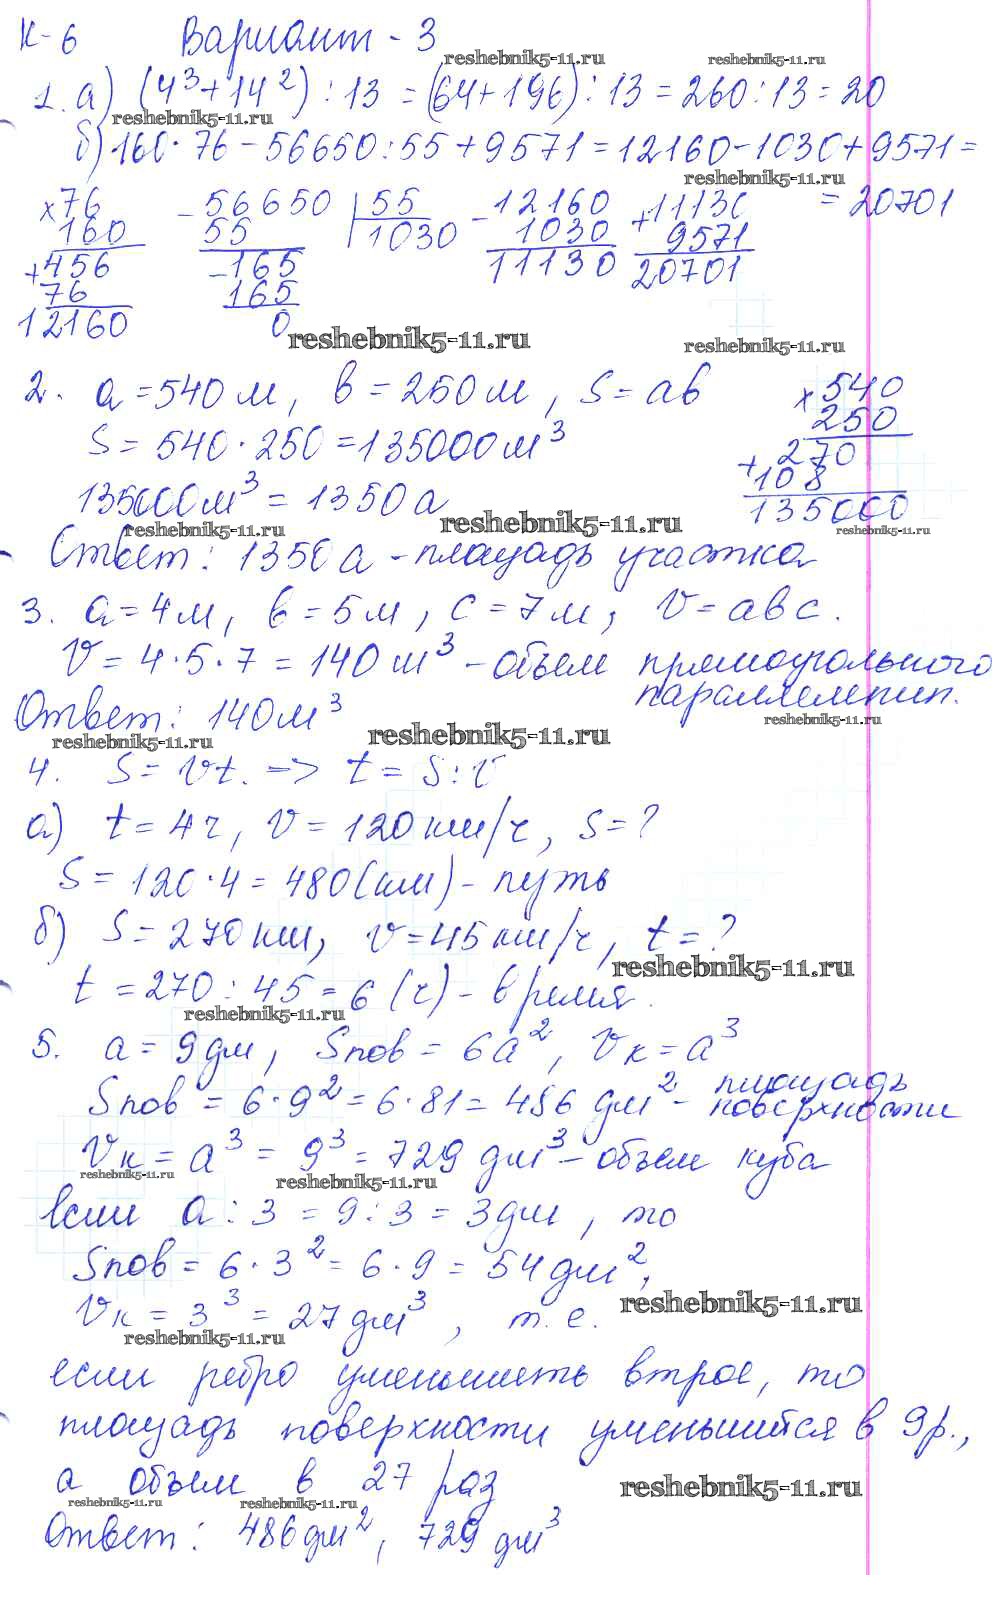 К-6 Вариант - 3
reshebnik5-11.ru reshebnik5-11.ru
1. а) (4³+14²) : 13 = (64+196) : 13 = 260 : 13 = 20
reshebnik5-11.ru
б) 160 · 76 - 56650 : 55 + 9571 = 12160 - 1030 + 9571 =
reshebnik5-11.ru
= 20701
× 76 - 56650 | 55 - 12160 + 11130
160 55 1030 1030 9571
+ 456 - 165 11130 20701
76 165
12160 0
reshebnik5-11.ru reshebnik5-11.ru
2. a = 540 м, в = 250 м, S = ав × 540
S = 540 · 250 = 135000 м³ 250
+ 270
135000 м³ = 1350 а 108
135000
reshebnik5-11.ru reshebnik5-11.ru reshebnik5-11.ru
Ответ: 1350 а - площадь участка
3. а = 4 м, в = 5 м, с = 7 м, V = авс.
V = 4 · 5 · 7 = 140 м³ - объем прямоугольного
параллелепип.
Ответ: 140 м³
reshebnik5-11.ru reshebnik5-11.ru reshebnik5-11.ru
4. S = Vt. => t = S : V
а) t = 4 ч, V = 120 км/ч, S = ?
S = 120 · 4 = 480 (км) - путь
б) S = 270 км, V = 45 км/ч, t = ?
reshebnik5-11.ru
t = 270 : 45 = 6 (ч) - время.
reshebnik5-11.ru
5. а = 9 дм, Sпов = 6а², Vк = а³
Sпов = 6 · 9² = 6 · 81 = 486 дм² - площадь
поверхности
Vк = а³ = 9³ = 729 дм³ - объем куба
reshebnik5-11.ru reshebnik5-11.ru
если а : 3 = 9 : 3 = 3 дм, то
Sпов = 6 · 3² = 6 · 9 = 54 дм²,
reshebnik5-11.ru
Vк = 3³ = 27 дм³, т. е.
reshebnik5-11.ru
если ребро уменьшить втрое, то
площадь поверхности уменьшится в 9 р.,
а объем в 27 раз
reshebnik5-11.ru reshebnik5-11.ru reshebnik5-11.ru
Ответ: 486 дм², 729 дм³